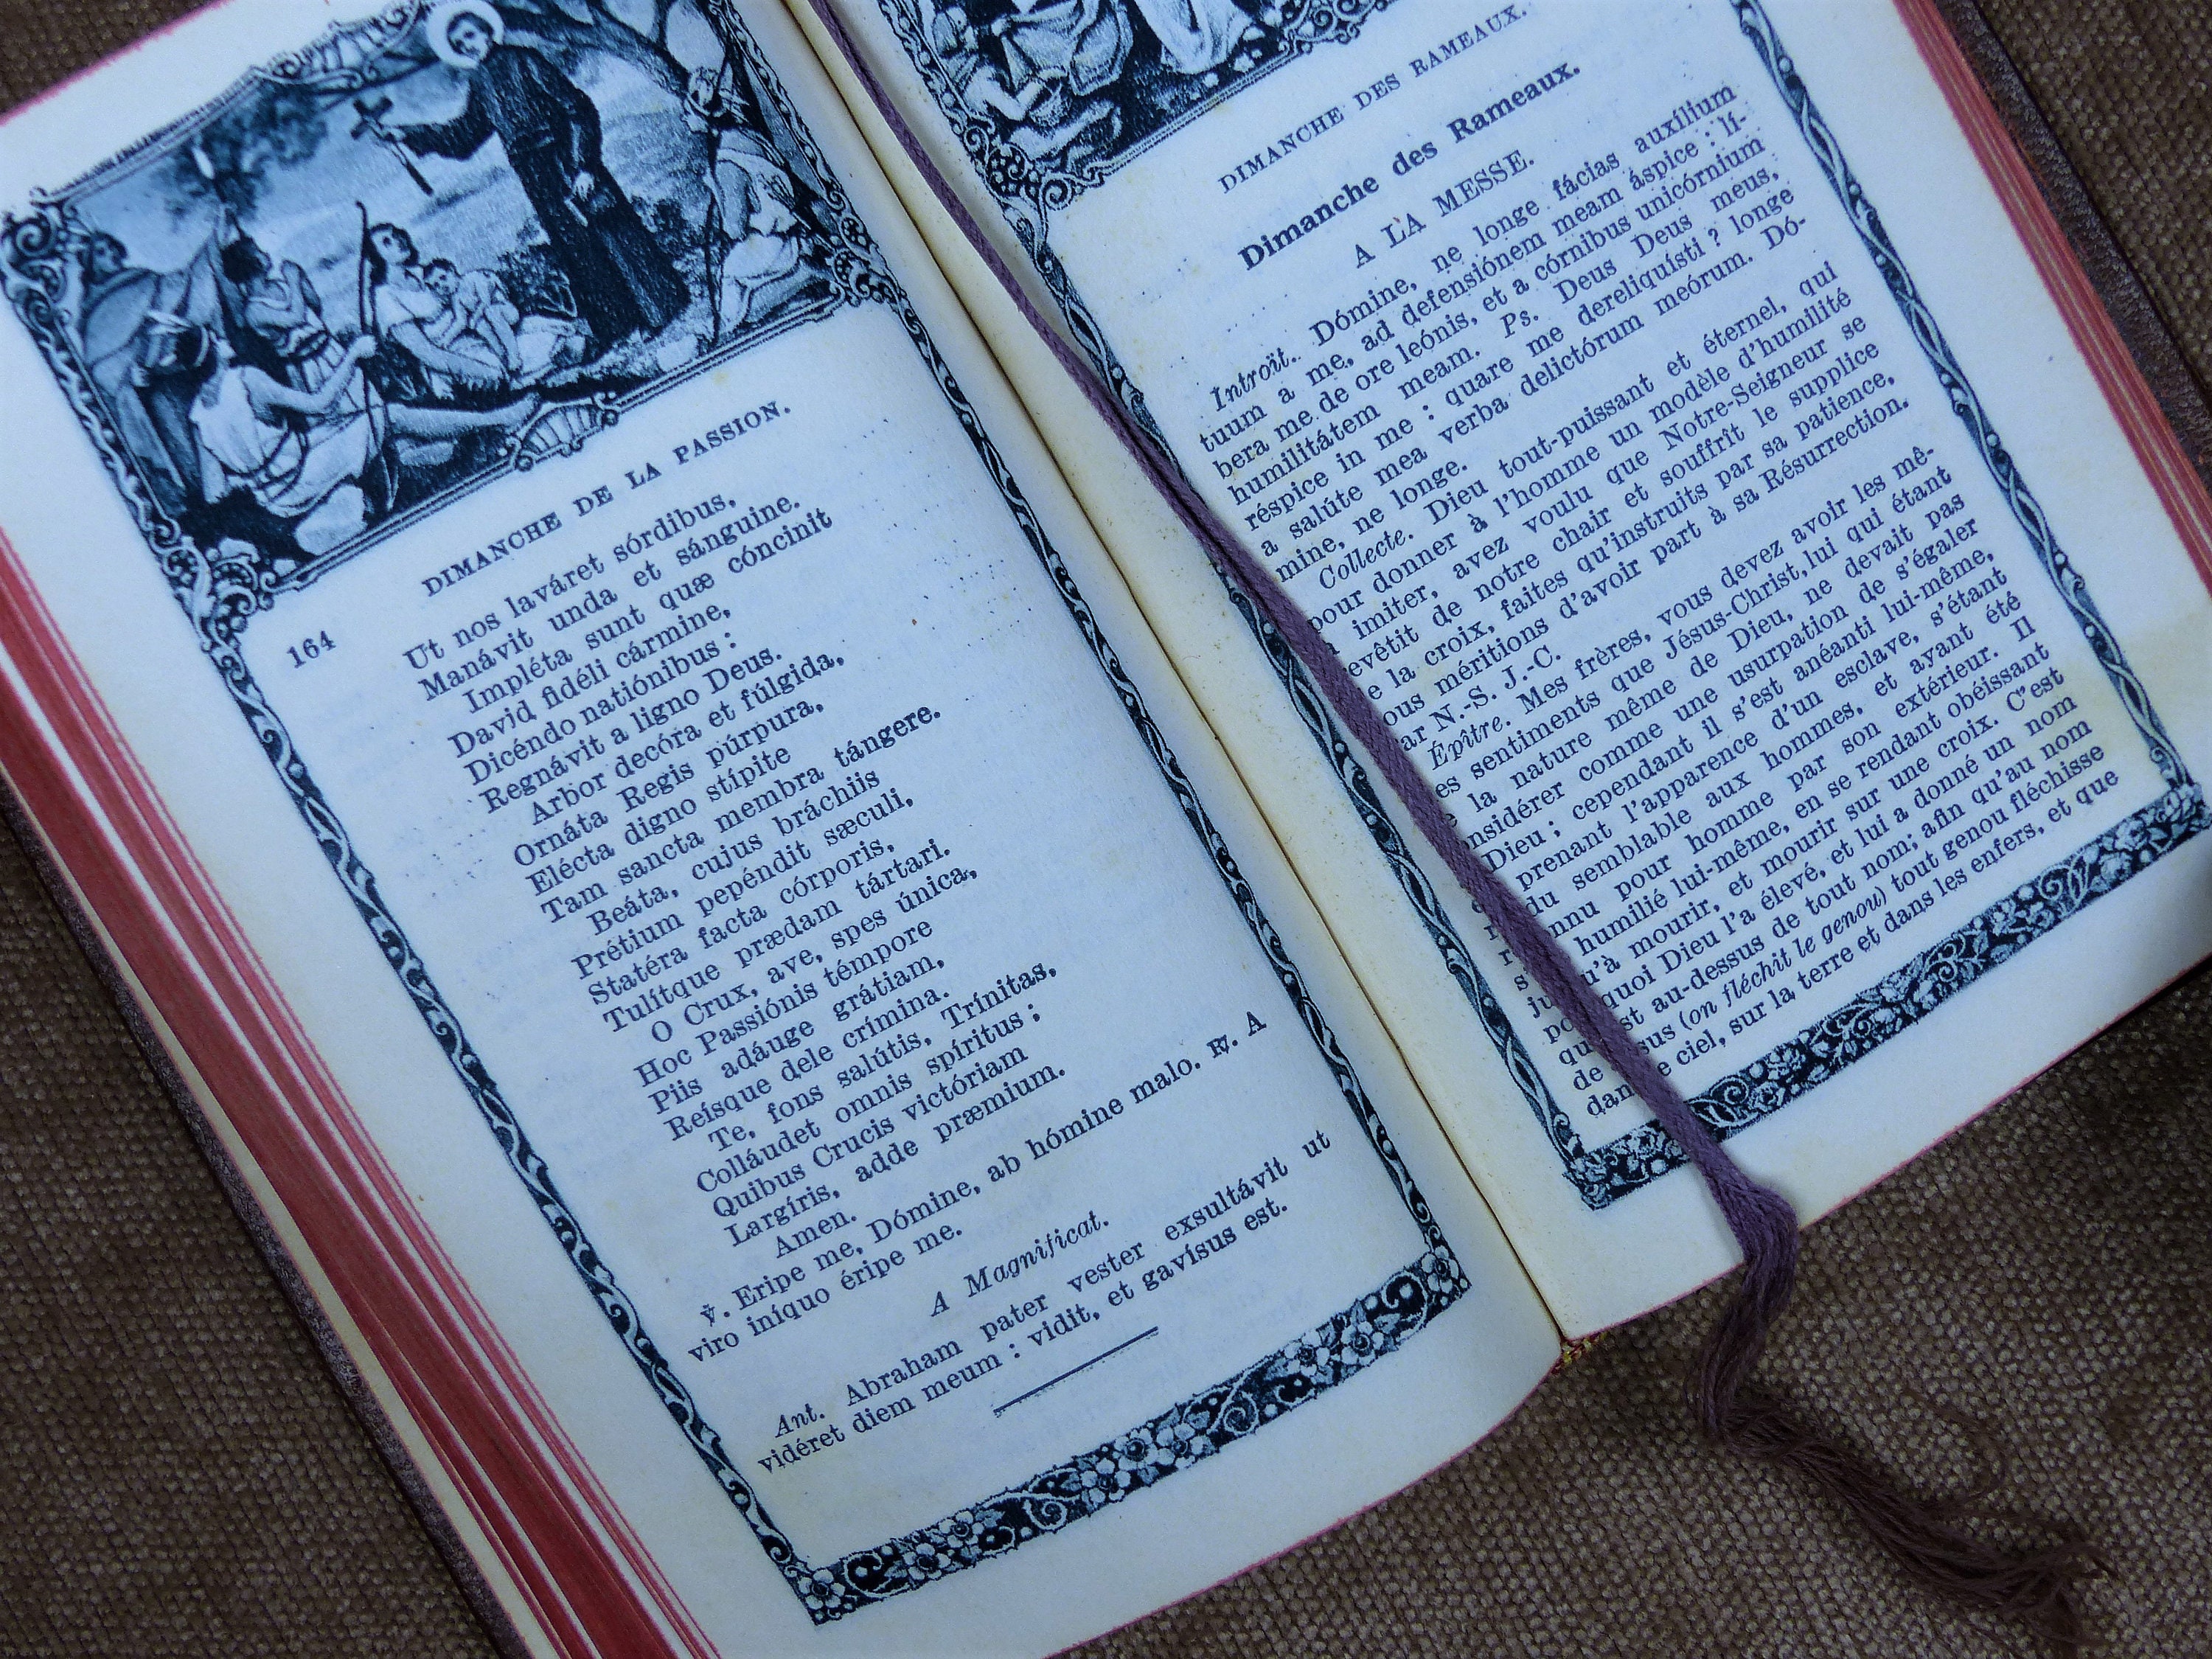 164
DIMANCHE DE LA PASSION.
Ut nos laváret sórdibus,
Manávit unda et sánguine.
Impléta sunt quæ cóncinit
David fidéli cármine,
Dicéndo natiónibus :
Regnávit a ligno Deus.
Arbor decóra et fúlgida,
Ornáta Regis púrpura,
Elécta digno stípite
Tam sancta membra tángere.
Beáta, cujus bráchiis
Prétium pepéndit sæculi,
Statéra facta córporis,
Tulítque prædam tártari.
O Crux, ave, spes única,
Hoc Passiónis témpore
Piis adáuge grátiam,
Reísque dele crímina.
Te, fons salútis, Trínitas,
Colláudet omnis spíritus ;
Quibus Crucis victóriam
Largíris, adde præmium.
Amen.
℣. Eripe me, Dómine, ab hómine malo. ℟. A
viro iníquo éripe me.
A Magnificat.
Ant. Abraham pater vester exsultávit ut
vidéret diem meum : vidit, et gavísus est.
DIMANCHE DES RAMEAUX.
Dimanche des Rameaux.
A LA MESSE.
Introït. Dómine, ne longe fácias auxílium
tuum a me, ad defensiónem meam áspice : lí-
bera me de ore leónis, et a córnibus unicórnium
humilitátem meam. Ps. Deus Deus meus,
réspice in me : quare me dereliquísti ? longe
a salúte mea verba delictórum meórum. Dó-
mine, ne longe.
Collecte. Dieu tout-puissant et éternel, qui
pour donner à l'homme un modèle d'humilité
à imiter, avez voulu que Notre-Seigneur se
revêtit de notre chair et souffrît le supplice
de la croix, faites qu'instruits par sa patience,
nous méritions d'avoir part à sa Résurrection.
Par N.-S. J.-C.
Épître. Mes frères, vous devez avoir les mê-
mes sentiments que Jésus-Christ, lui qui étant
de la nature même de Dieu, ne devait pas
considérer comme une usurpation de s'égaler
à Dieu ; cependant il s'est anéanti lui-même,
prenant l'apparence d'un esclave, s'étant
du semblable aux hommes, et ayant été
nnu pour homme par son extérieur. Il
humilié lui-même, en se rendant obéissant
jusqu'à mourir, et mourir sur une croix. C'est
pourquoi Dieu l'a élevé, et lui a donné un nom
qui est au-dessus de tout nom; afin qu'au nom
de Jésus (on fléchit le genou) tout genou fléchisse
dans le ciel, sur la terre et dans les enfers, et que